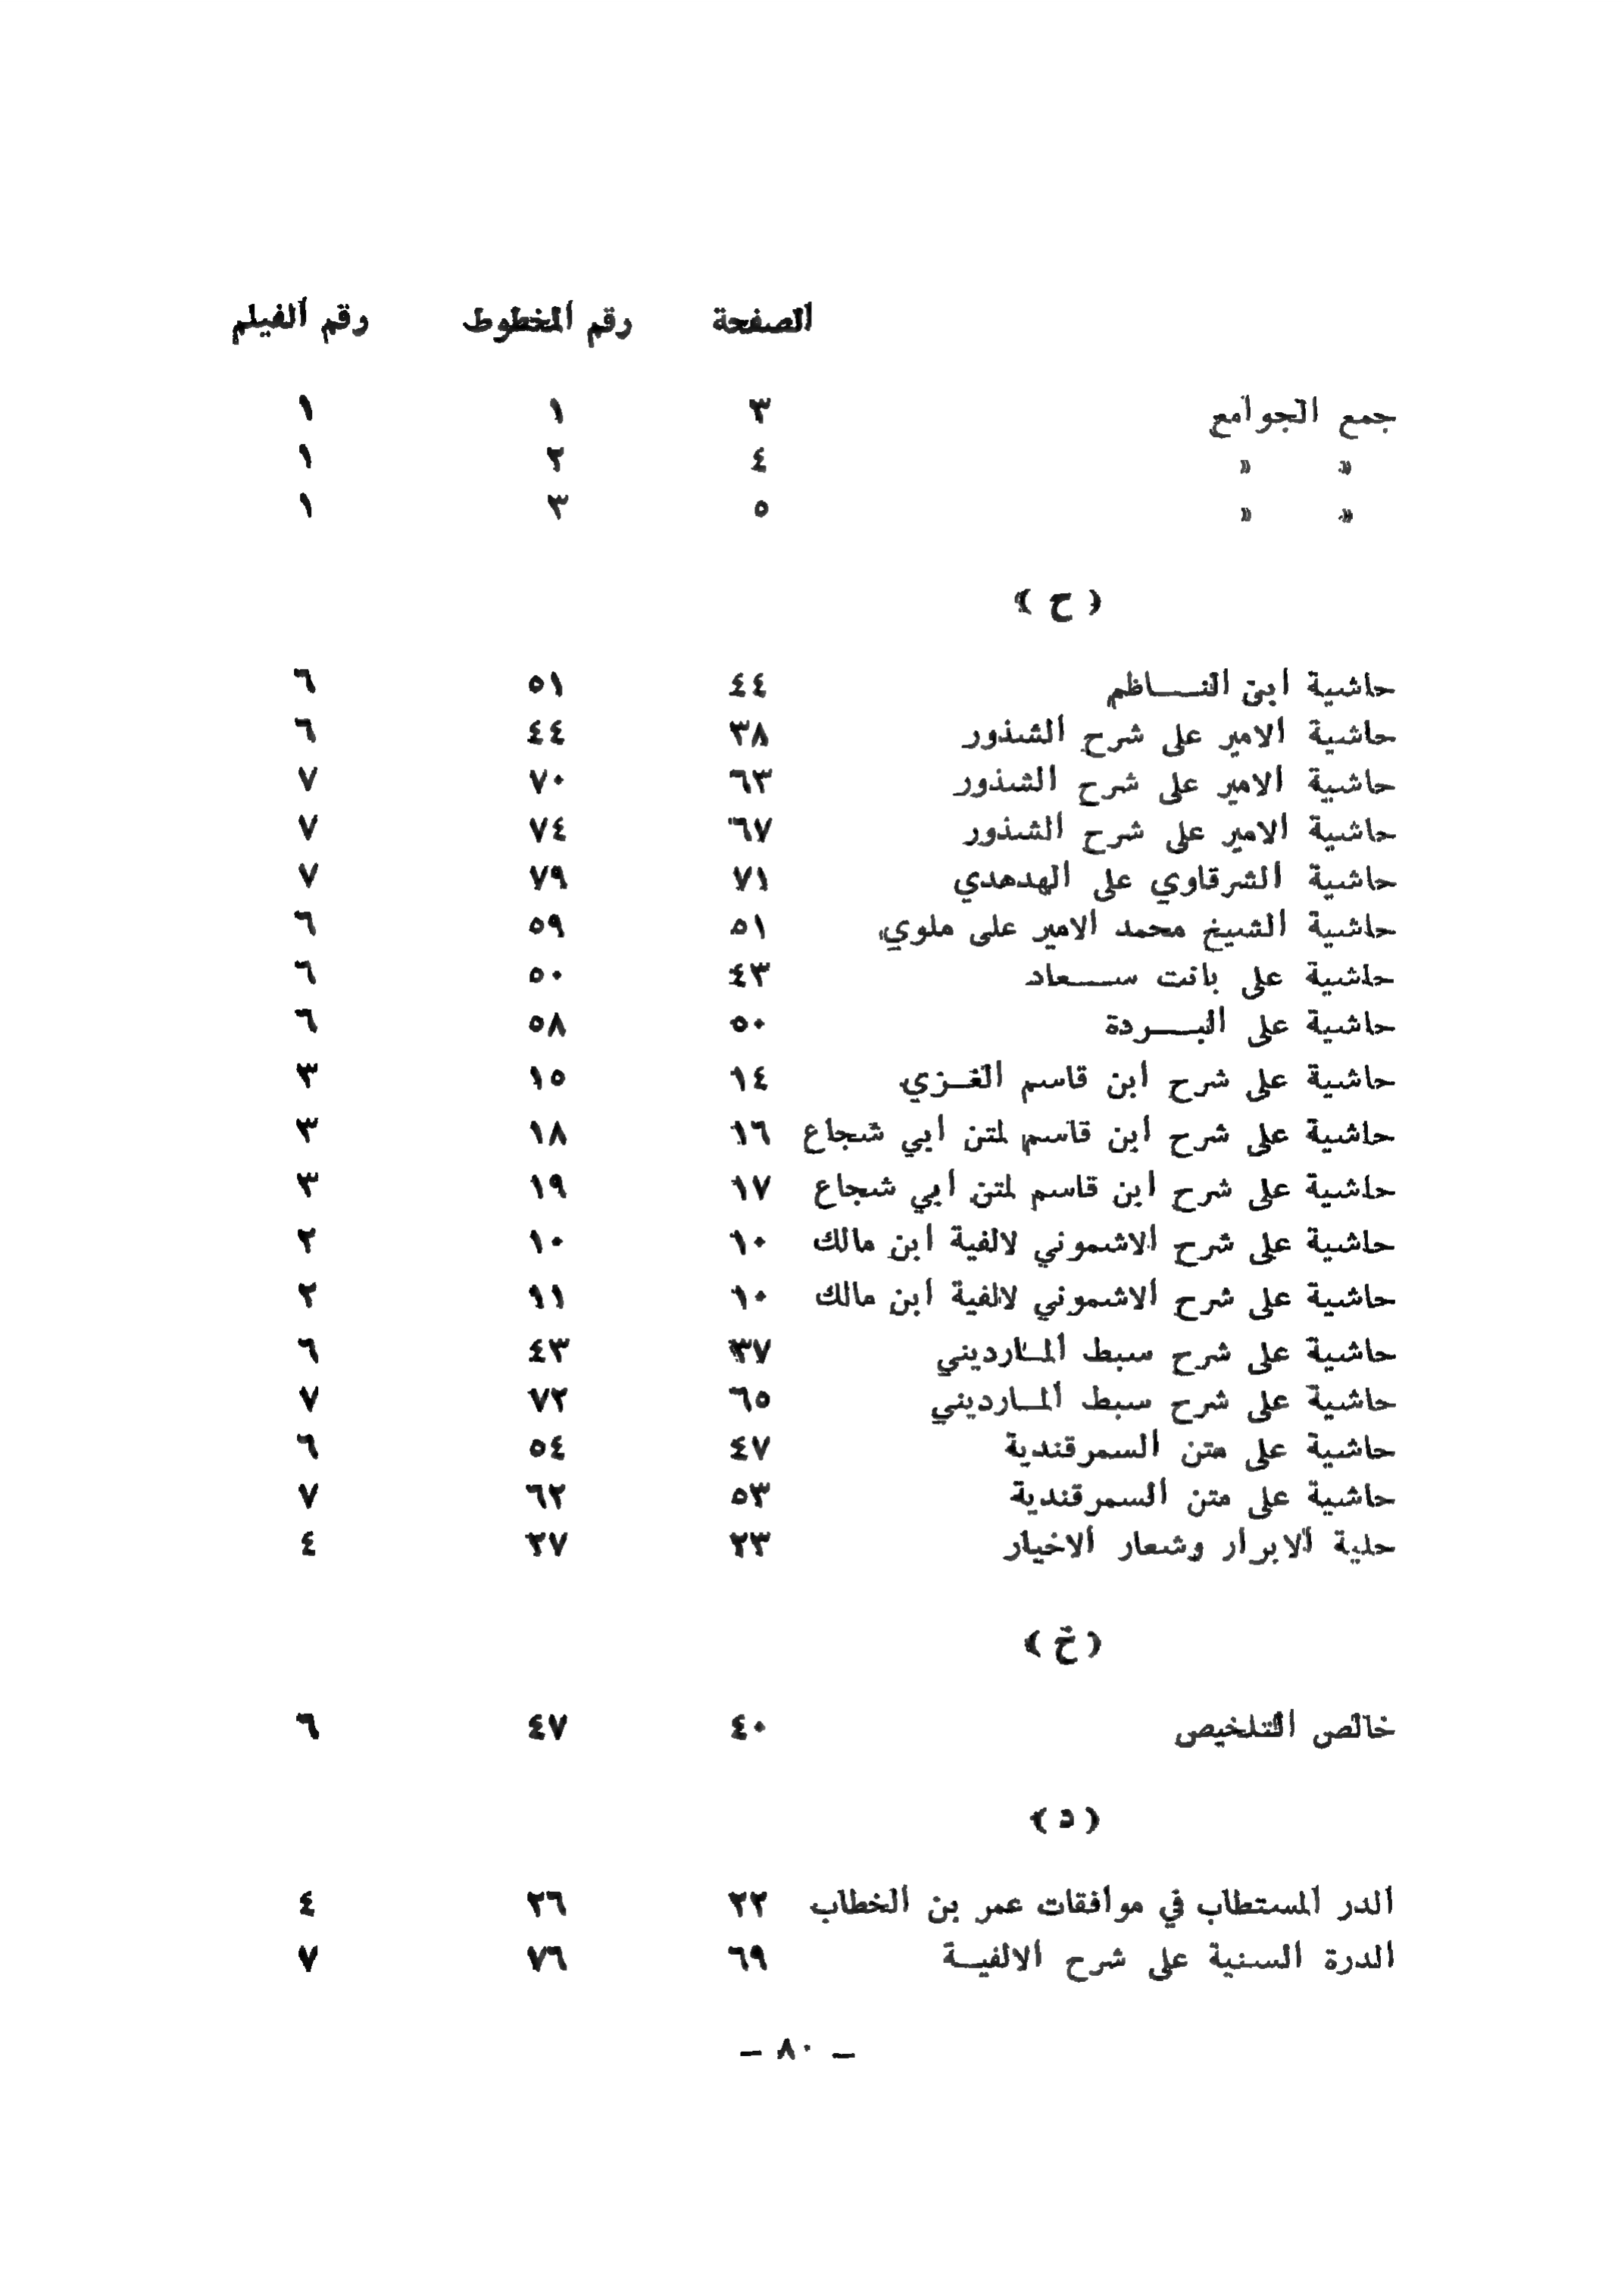 الصفحة رقم المخطوط رقم الفيلم
جمع الجوامع ٣ ١ ١
« « ٤ ٢ ١
« « ٥ ٣ ١
( ح )
حاشية ابن النـــاظم ٤٤ ٥١ ٦
حاشية الامير على شرح الشذور ٣٨ ٤٤ ٦
حاشية الامير على شرح الشذور ٦٣ ٧٠ ٧
حاشية الامير على شرح الشذور ٦٧ ٧٤ ٧
حاشية الشرقاوي على الهدهدي ٧١ ٧٩ ٧
حاشية الشيخ محمد الامير على ملوي ٥١ ٥٩ ٦
حاشية على بانت ســـعاد ٤٣ ٥٠ ٦
حاشية على البـــردة ٥٠ ٥٨ ٦
حاشية على شرح ابن قاسم الغــزي ١٤ ١٥ ٣
حاشية على شرح ابن قاسم لمتن ابي شجاع ١٦ ١٨ ٣
حاشية على شرح ابن قاسم لمتن ابي شجاع ١٧ ١٩ ٣
حاشية على شرح الاشموني لالفية ابن مالك ١٠ ١٠ ٢
حاشية على شرح الاشموني لالفية ابن مالك ١٠ ١١ ٢
حاشية على شرح سبط المــارديني ٣٧ ٤٣ ٦
حاشية على شرح سبط المــارديني ٦٥ ٧٢ ٧
حاشية على متن السمرقندية ٤٧ ٥٤ ٦
حاشية على متن السمرقندية ٥٣ ٦٢ ٧
حلية الابرار وشعار الاخيار ٢٣ ٢٧ ٤
( خ )
خالص التلخيص ٤٠ ٤٧ ٦
( د )
الدر المستطاب في موافقات عمر بن الخطاب ٢٢ ٢٦ ٤
الدرة السنية على شرح الالفيــة ٦٩ ٧٦ ٧
– ٨٠ –